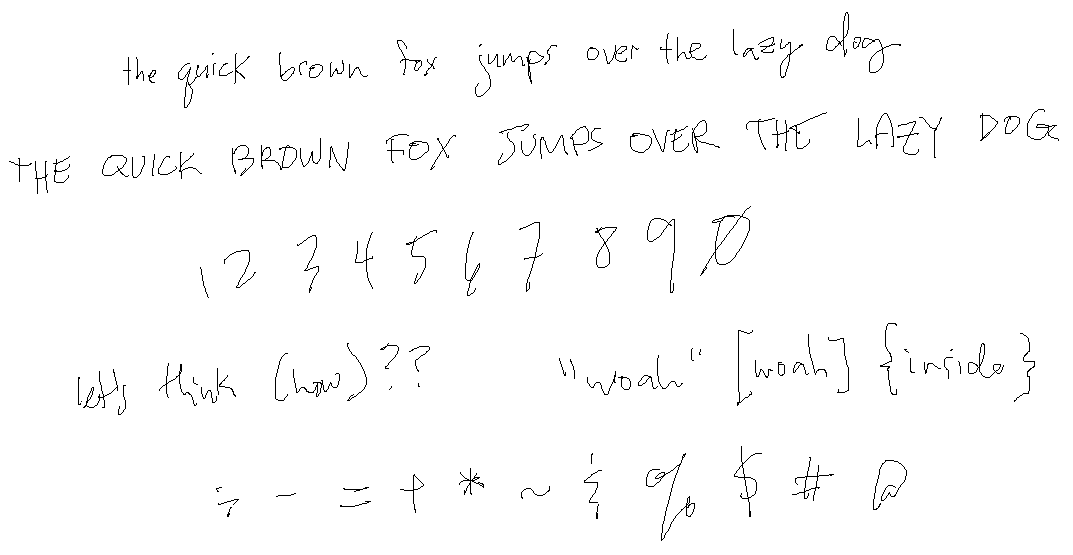 the quick brown fox jumps over the lazy dog
THE QUICK BROWN FOX JUMPS OVER THE LAZY DOG
1 2 3 4 5 6 7 8 9 0
let's think (how)?? "woah" [woah] {inside}
÷ - = + * ~ & % $ # @